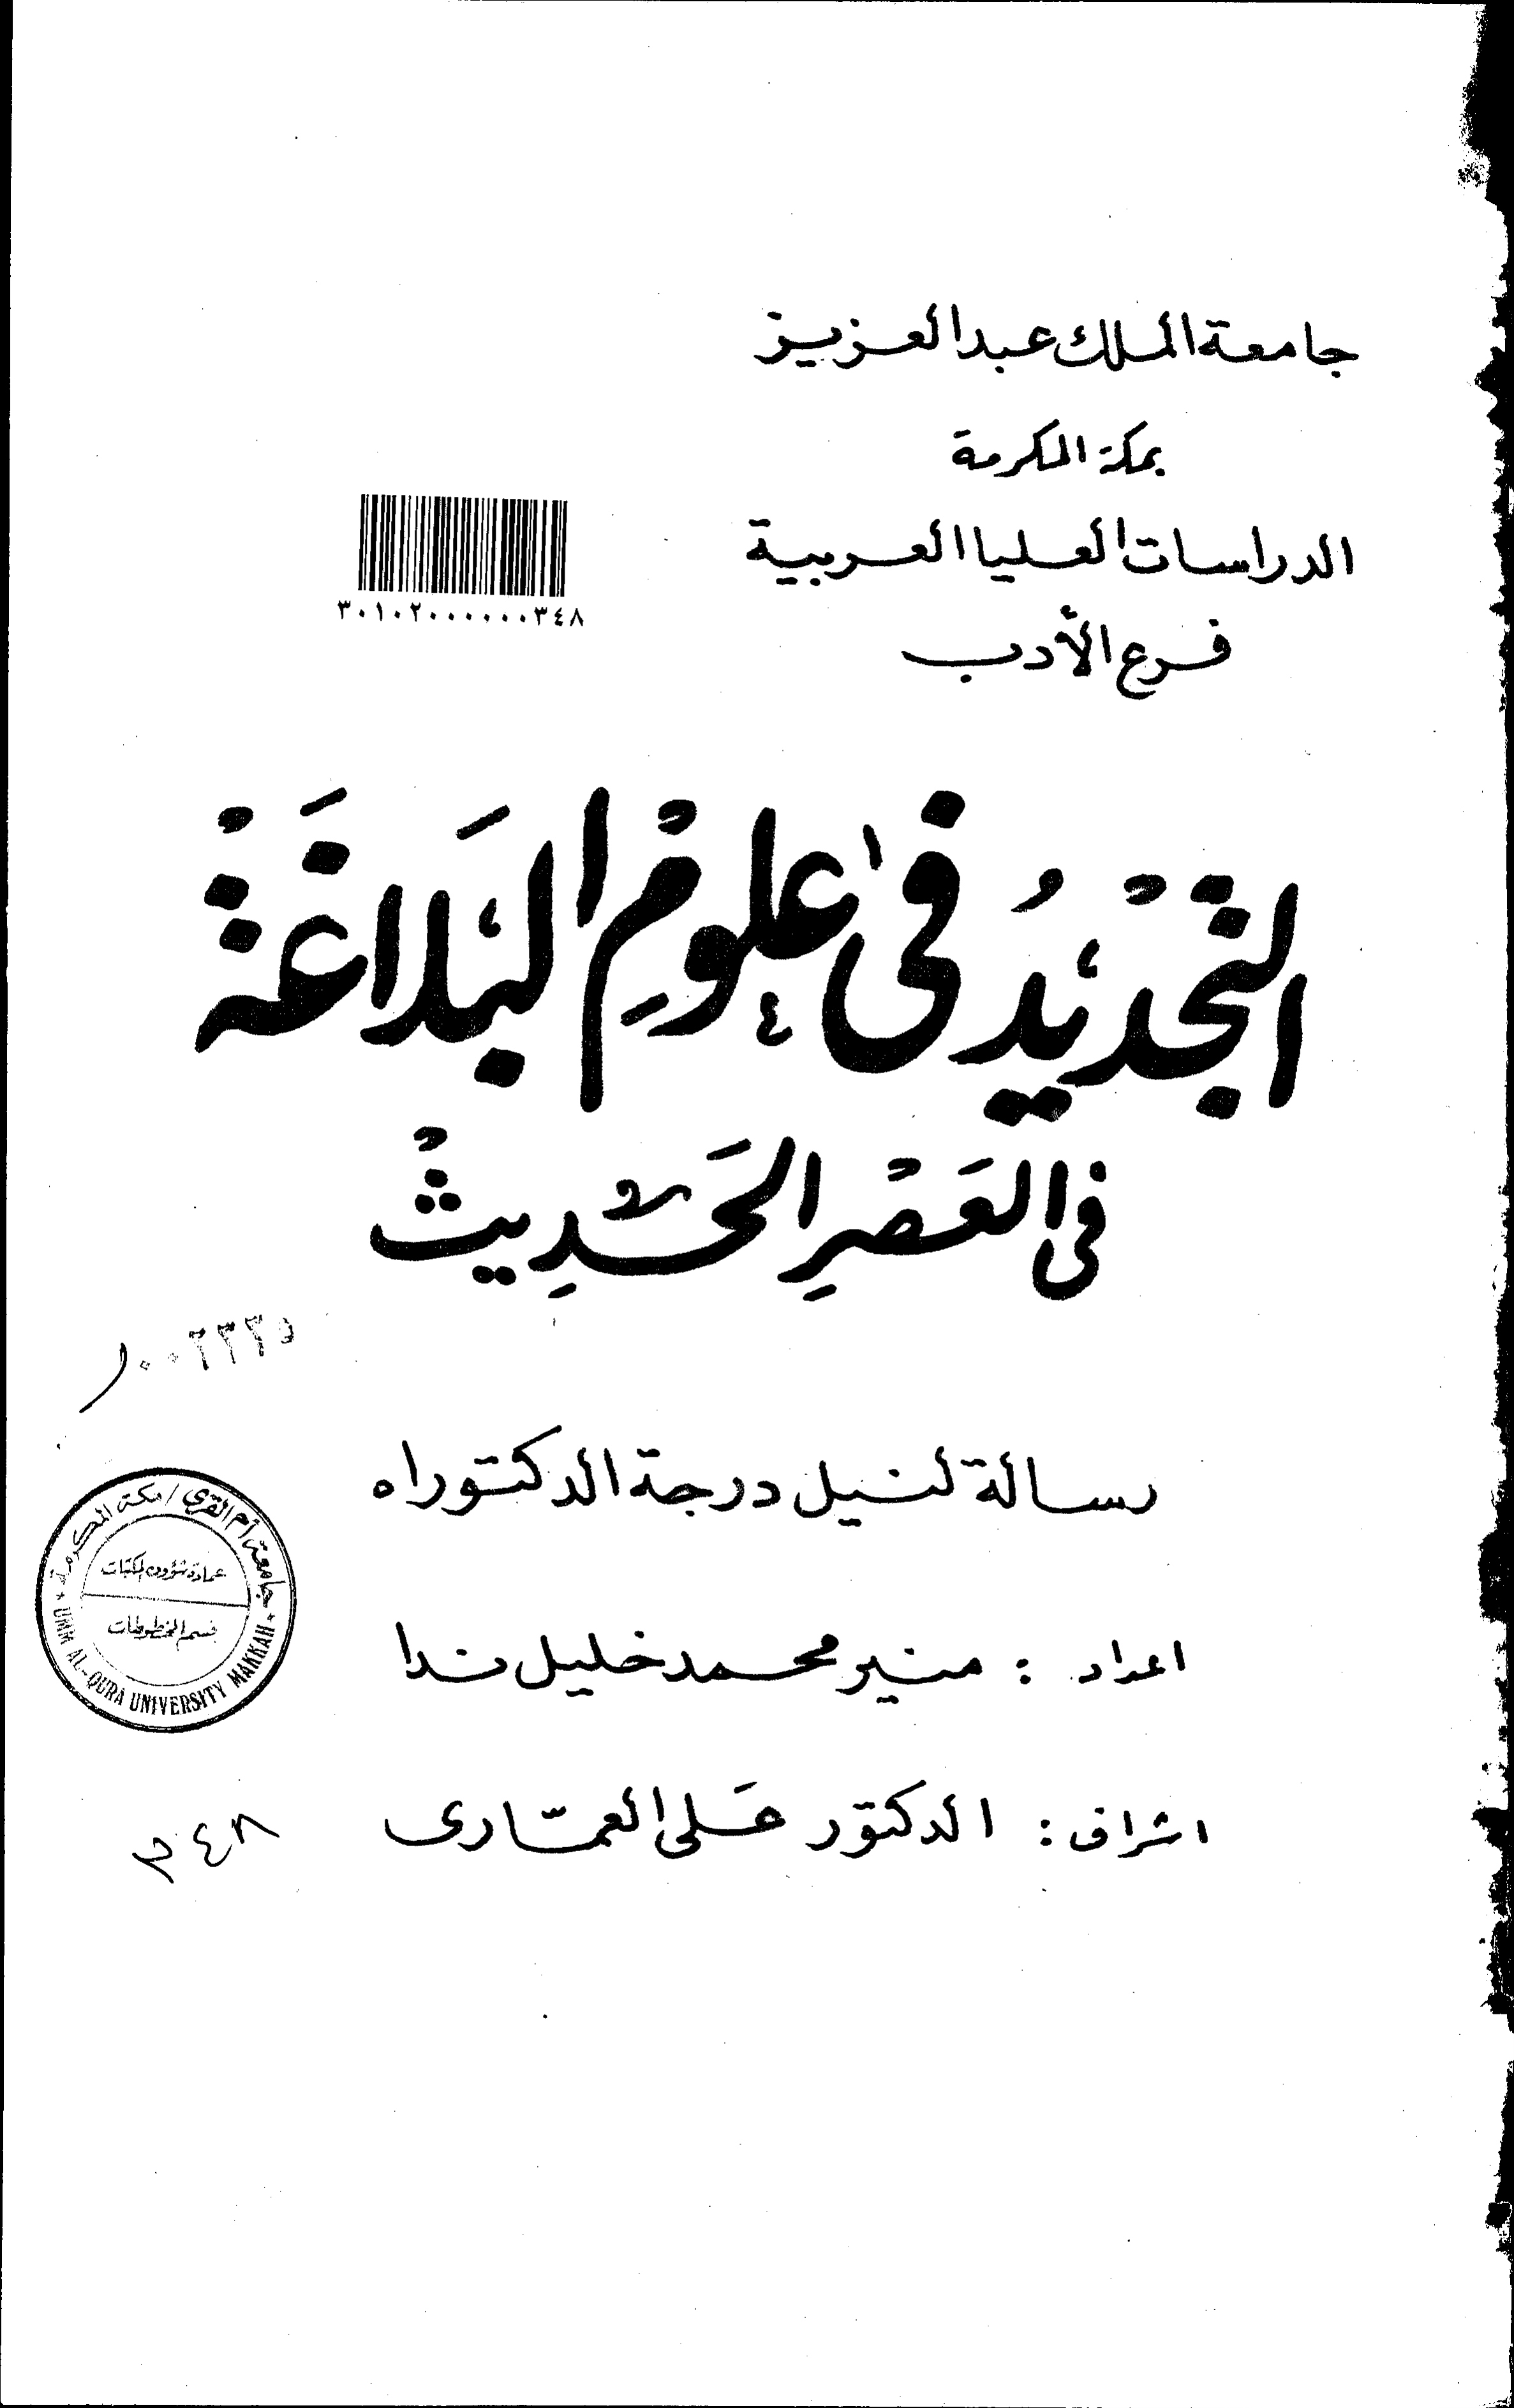 جامعة الملك عبد العزيز
بمكة المكرمة
الدراسات العليا العربية
فرع الأدب
٣٠١٠٢٠٠٠٠٠٠٣٤٨
التجْدِيْدُ في عُلوْمِ البَلَاغَةْ
في العَصْرِ الحَدِيثْ
رسالة لنيل درجة الدكتوراه
جامعة أم القرى / مكة المكرمة
عمادة شؤون المكتبات
قسم المخطوطات
UMM AL-QURA UNIVERSITY MAKKAH
اعداد : منير محمد خليل ندا
اشراف : الدكتور عَلى العمّارى
٣٤٨